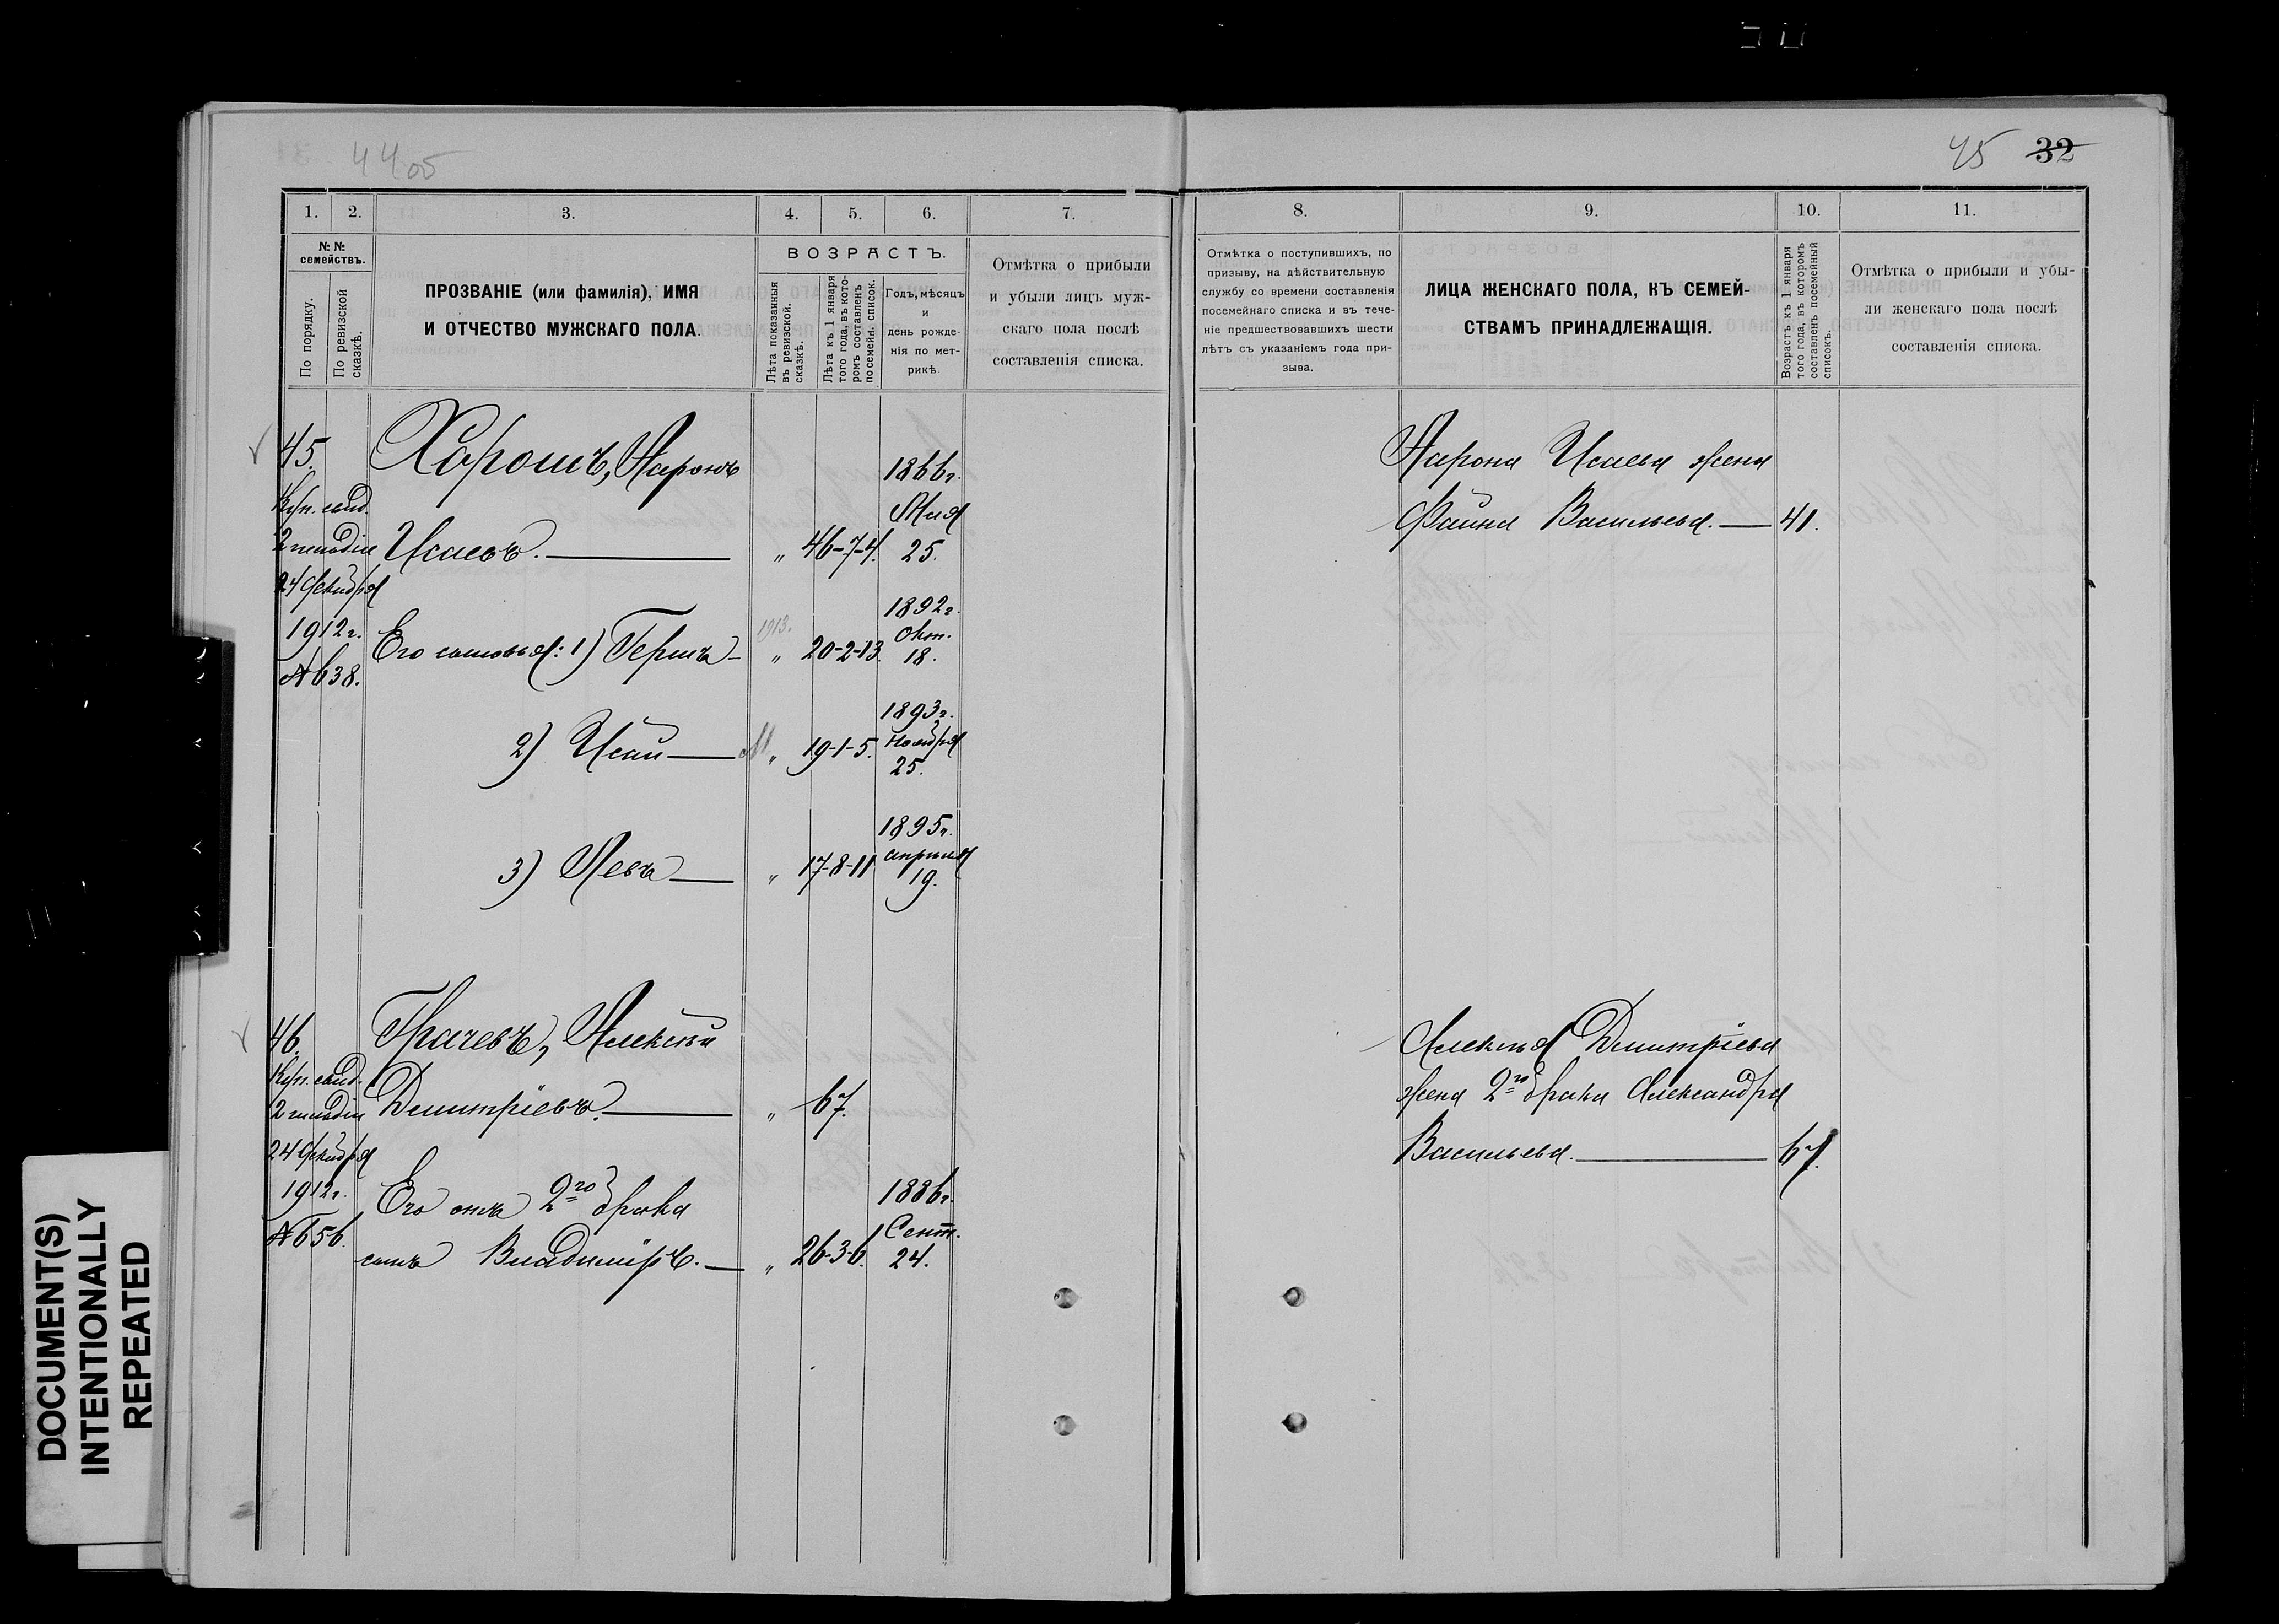 44об
45 32
1. 2. 3. 4. 5. 6. 7.
№№ семействъ.
По порядку.
По ревизской сказкѣ.
ПРОЗВАНІЕ (или фамилія), ИМЯ
И ОТЧЕСТВО МУЖСКАГО ПОЛА.
ВОЗРАСТЪ.
Лѣта показанныя
въ ревизской.
сказкѣ.
Лѣта къ 1 января
того года, въ кото-
ромъ составленъ
посемейн. список.
Годъ, мѣсяцъ
и
день рожде-
нія по мет-
рикѣ.
Отмѣтка о прибыли
и убыли лицъ муж-
скаго пола послѣ
составленія списка.
45.
Куп. свид.
2 гильдіи
24 Декабря
1912 г.
№ 638.
Хорошъ, Ааронъ
Исаевъ.
" 46-7-4.
1866 г.
Мая
25.
Его сыновья: 1) Герша
1913.
" 20-2-13.
1892 г.
Окт.
18.
2) Исай
" 19-1-5.
1893 г.
Ноября
25.
3) Левъ
" 17-8-11
1895 г.
апрѣля
19.
46.
Куп. свид.
2 гильдіи
24 Декабря
1912 г.
№ 656.
Грачевъ, Алексѣй
Дмитріевъ.
" 67.
Его отъ 2го брака
сынъ Владиміръ.
" 26-3-6.
1886 г.
Сент.
24.
8. 9. 10. 11.
Отмѣтка о поступившихъ, по
призыву, на дѣйствительную
службу со времени составленія
посемейнаго списка и въ тече-
ніе предшествовавшихъ шести
лѣтъ съ указаніемъ года при-
зыва.
ЛИЦА ЖЕНСКАГО ПОЛА, КЪ СЕМЕЙ-
СТВАМЪ ПРИНАДЛЕЖАЩІЯ.
Возрастъ къ 1 января
того года, въ которомъ
составленъ посемейный
списокъ.
Отмѣтка о прибыли и убы-
ли женскаго пола послѣ
составленія списка.
Аарона Исаева жена
Фаина Васильева. 41.
Алексѣя Дмитріева
жена 2го брака Александра
Васильева. 67.
DOCUMENT(S)
INTENTIONALLY
REPEATED